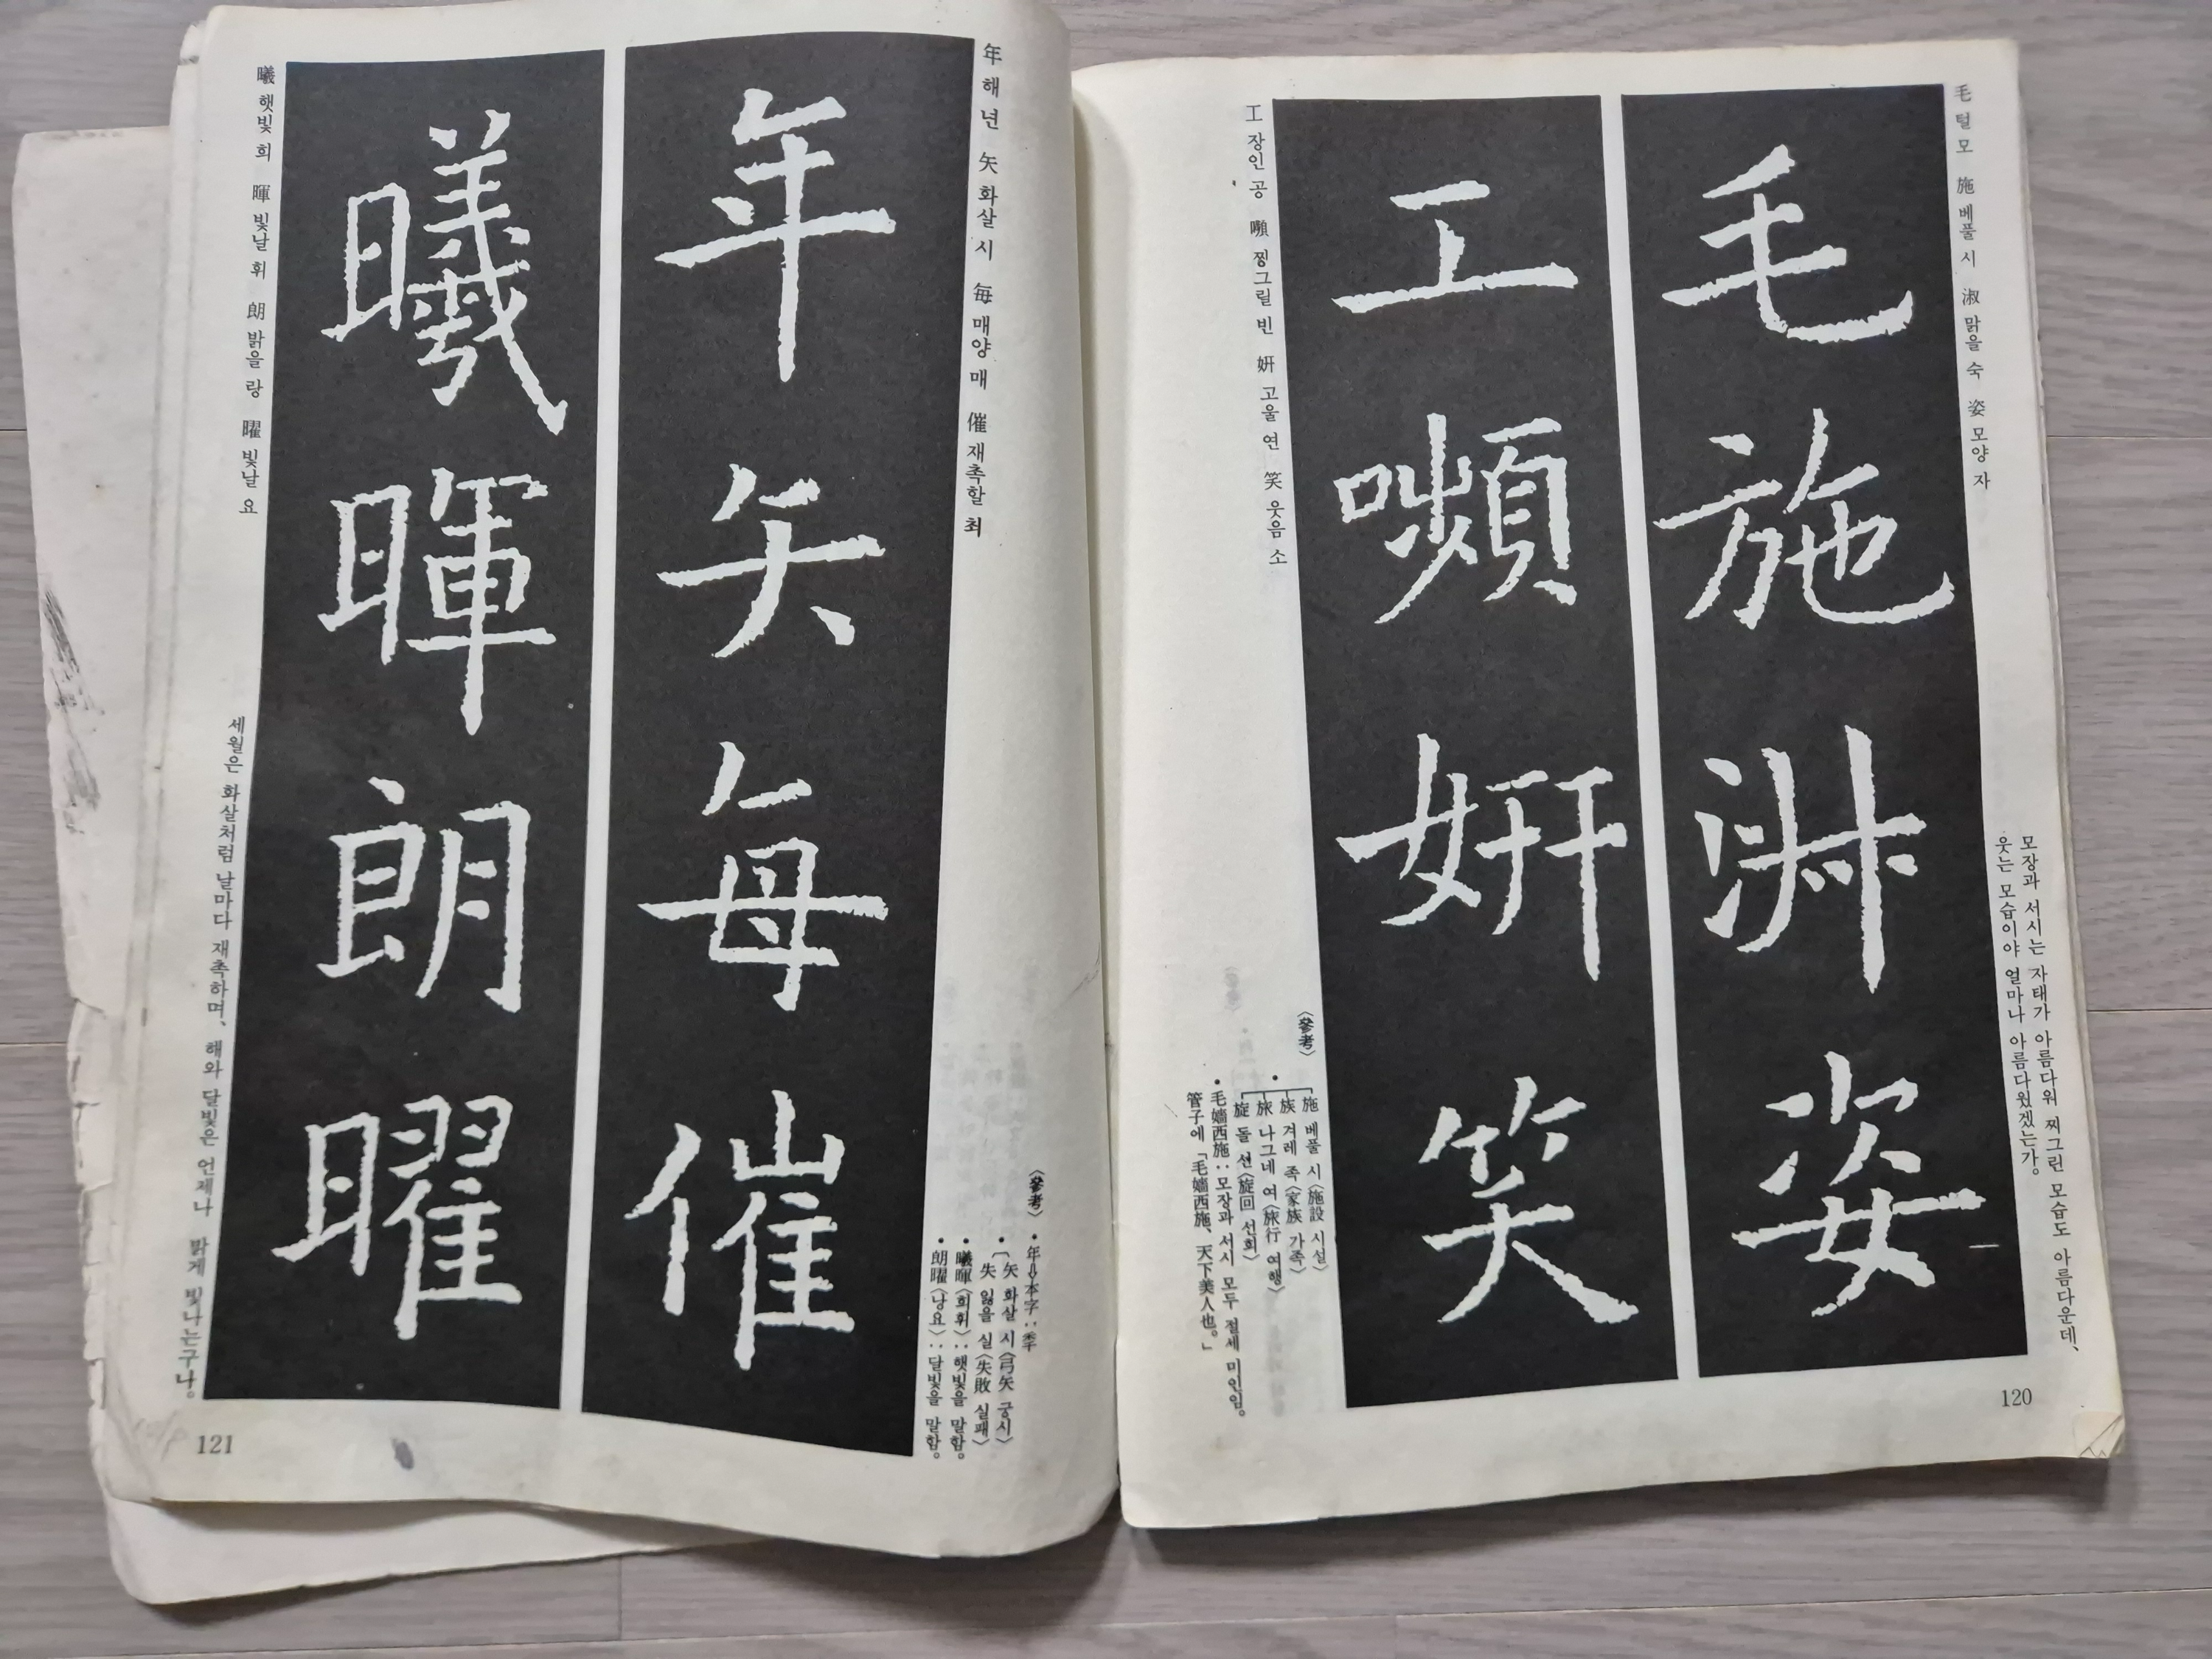 毛 털 모 施 베풀 시 淑 맑을 숙 姿 모양 자
모장과 서시는 자태가 아름다워 찌그린 모습도 아름다운데,
웃는 모습이야 얼마나 아름다웠겠는가.
毛施淑姿
工嚬妍笑
工 장인 공 嚬 찡그릴 빈 妍 고울 연 笑 웃음 소
〈參考〉
• 施 베풀 시〈施設 시설〉
族 겨레 족〈家族 가족〉
旅 나그네 여〈旅行 여행〉
旋 돌 선〈旋回 선회〉
• 毛嬙西施:모장과 서시 모두 절세 미인임.
管子에「毛嬙西施、天下美人也。」
120
年 해 년 矢 화살 시 每 매양 매 催 재촉할 최
〈參考〉 • 年⇩本字:秊
• 矢 화살 시〈弓矢 궁시〉
失 잃을 실〈失敗 실패〉
• 曦暉〈희휘〉:햇빛을 말함.
• 朗曜〈낭요〉:달빛을 말함.
年矢每催
曦暉朗曜
曦 햇빛 희 暉 빛날 휘 朗 밝을 랑 曜 빛날 요
세월은 화살처럼 날마다 재촉하며, 해와 달빛은 언제나 밝게 빛나는구나.
121